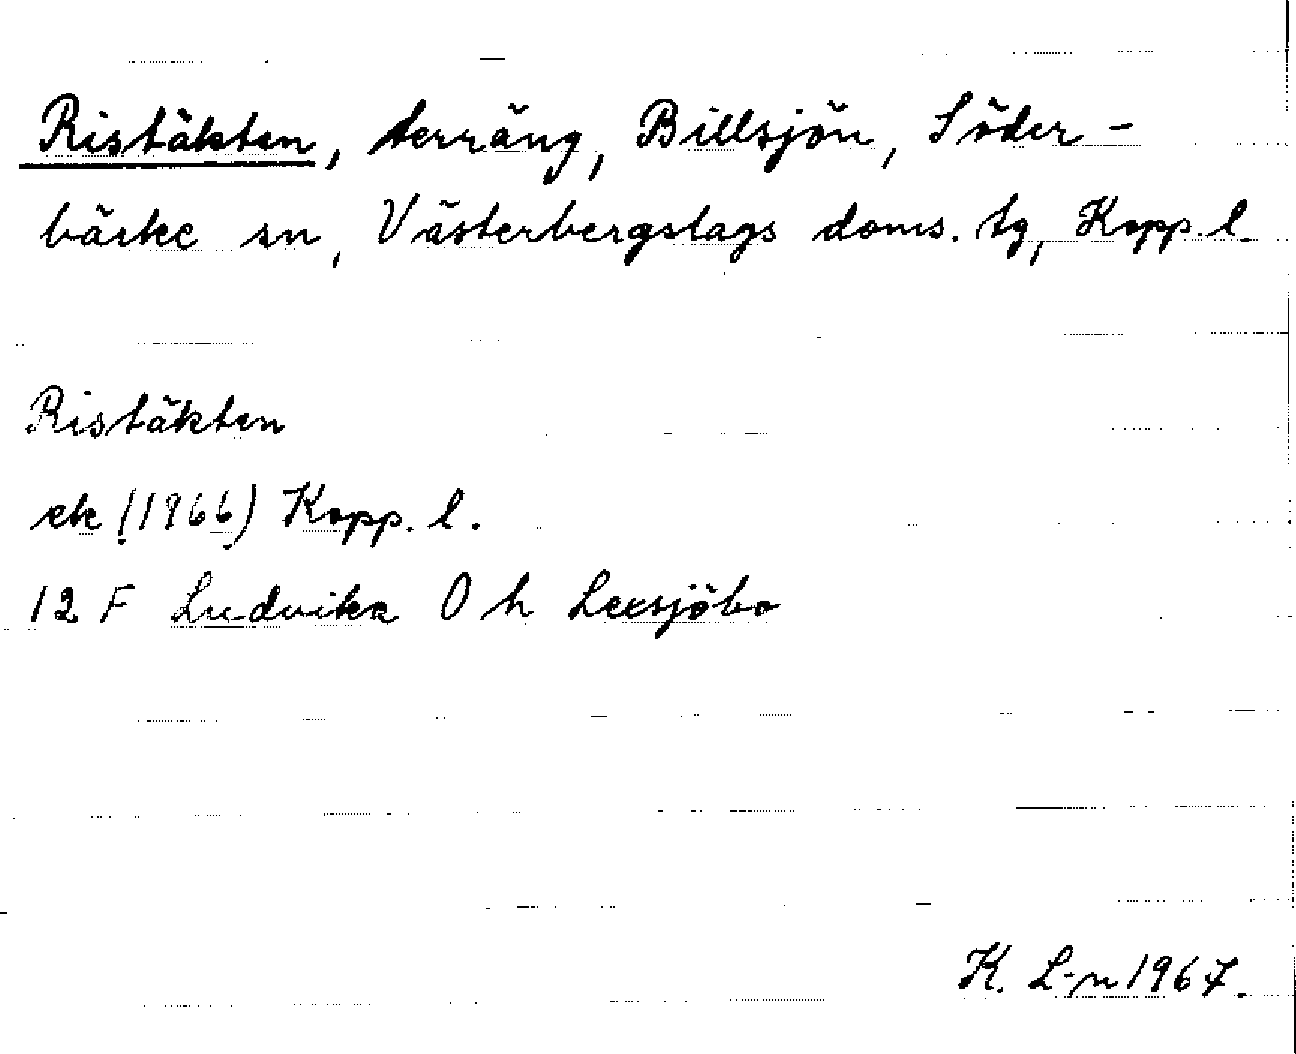 Ristäkten, terräng, Billsjön, Söder-
bärke sn, Västerbergslags doms. tg, Kopp. l.
Ristäkten
ek (1966) Kopp. l.
12 F Ludvika O h Leesjöbo
K. L-n 1967.